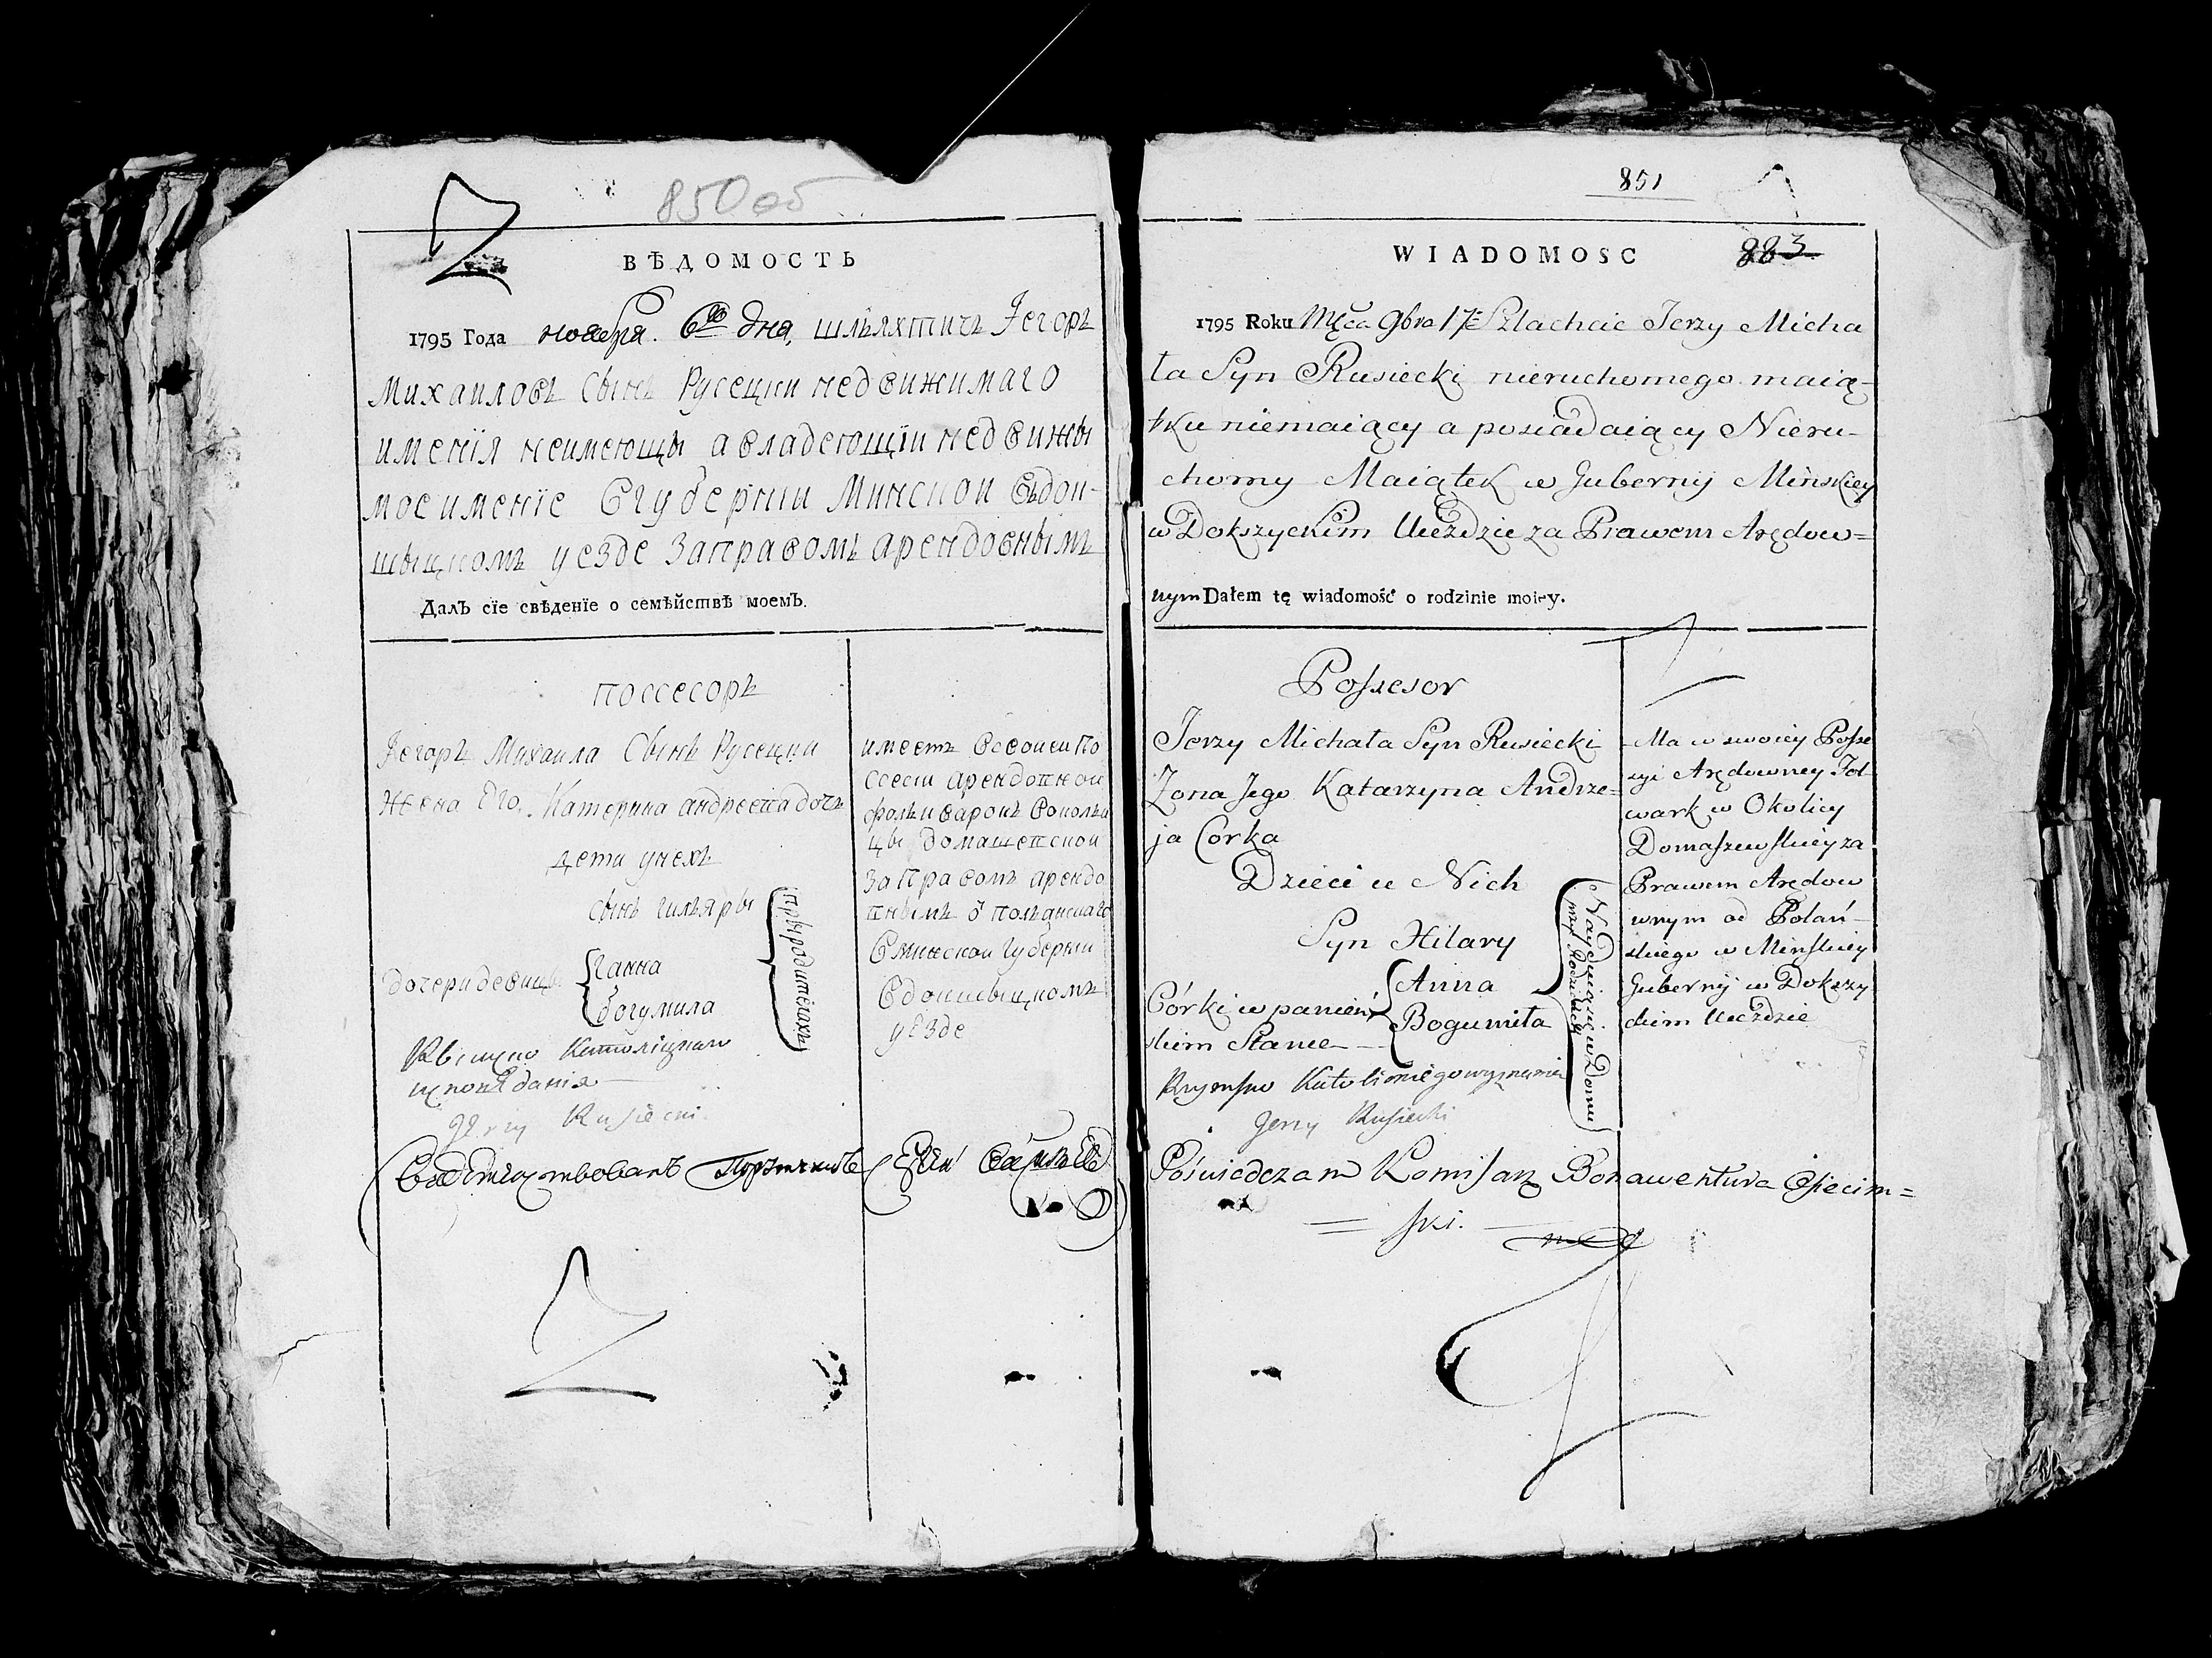 850 об
ВѢДОМОСТЬ
1795 Года ноября. 6го дня, шляхтичъ Јегоръ
Михаиловъ Сынъ Русецки недвижимаго
имения неимеющы авладеющїи недвижы
мое имение Вгубернии Минской въдок-
шыцкомъ уезде Заправомъ арендовнымъ
ДалЪ сїе свѣденїе о семѣйствѣ моемЪ.
поссесоръ
Јегоръ Михаила Сынъ Русецки
Жена Его Катерина андреева дочъ
дети унехъ
сынъ гиляры
дочери девицы
Ганна
богумила
прыродителахъ
имеетъ Всвоеи По
ссесіи арендовной
фольваронъ Воколи
цы домашевской
Заправомъ арендо
внымъ о полянскаго
Вминской губернии
Вдокшыцкомъ
уезде
Jerzy Rusiecki
851
WIADOMOSC 883
1795 Roku Mca 9bra 17 Szlachcic Jerzy Micha
ła Syn Rusiecki nieruchomego maią-
tku niemaiący a posiadaiący Nieru-
chomy Maiątek w Gubernij Minskiey
w Dokszyckim Uezdzie za Prawem Arędow=
nym Dałem tę wiadomość o rodzinie moiey.
Possesor
Jerzy Michała Syn Rusiecki
Zona Jego Katarzyna Andrze-
ja Córka
Dzieci u Nich
Syn Hilary
Córki w panień
skim Stanie
Anna
Bogumiła
Nayduią się w Domu
przy Rodzicach
Ma w swoiey Posse
syi Arędowney Fol-
wark w Okolicy
Domaszewskiey za
Prawem Arędow
wnym od Polań-
skiego w Minskiey
Gubernij w Dokszy
ckim Uezdzie
Rzymsko Katolickiego wyznania
Jerzy Rusiecki
Poświadczam Komisarz Bonawentura Osiecim=
= ski.